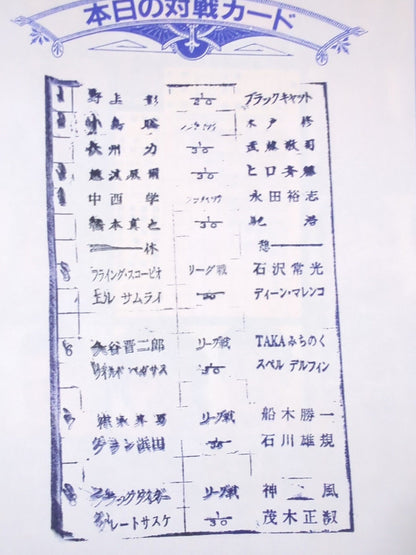 本日の対戦カード
1 野上 彰 1/30 ブラックキャット
小島 聡 木戸 修
長州 力 1/30 武藤敬司
越中詩郎 1/30 ヒロ斉藤
中西 学 永田裕志
橋本真也 1/30
休 憩
5 フライング・スコーピオ リーグ戦 石沢常光
エル サムライ 30 ディーン・マレンコ
6 大谷晋二郎 リーグ戦 TAKAみちのく
ワイルド ペガサス 30 スペル デルフィン
リーグ戦 船木勝一
グラン浜田 30 石川雄規
8 ブラックタイガー リーグ戦 神 風
グレートサスケ 1/30 茂木正淑